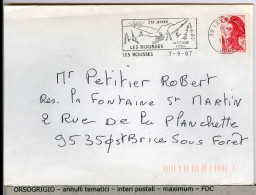 ÉTÉ-HIVER
LES ROUSSES
ALTITUDE
1100m
LES ROUSSES
7-9-87
Mr Petitier Robert
Res. la Fontaine St Martin
2 Rue de la Planchette
95350 St Brice Sous Foret
ORSOGRIGIO – annulli tematici – interi postali – maximum – FDC